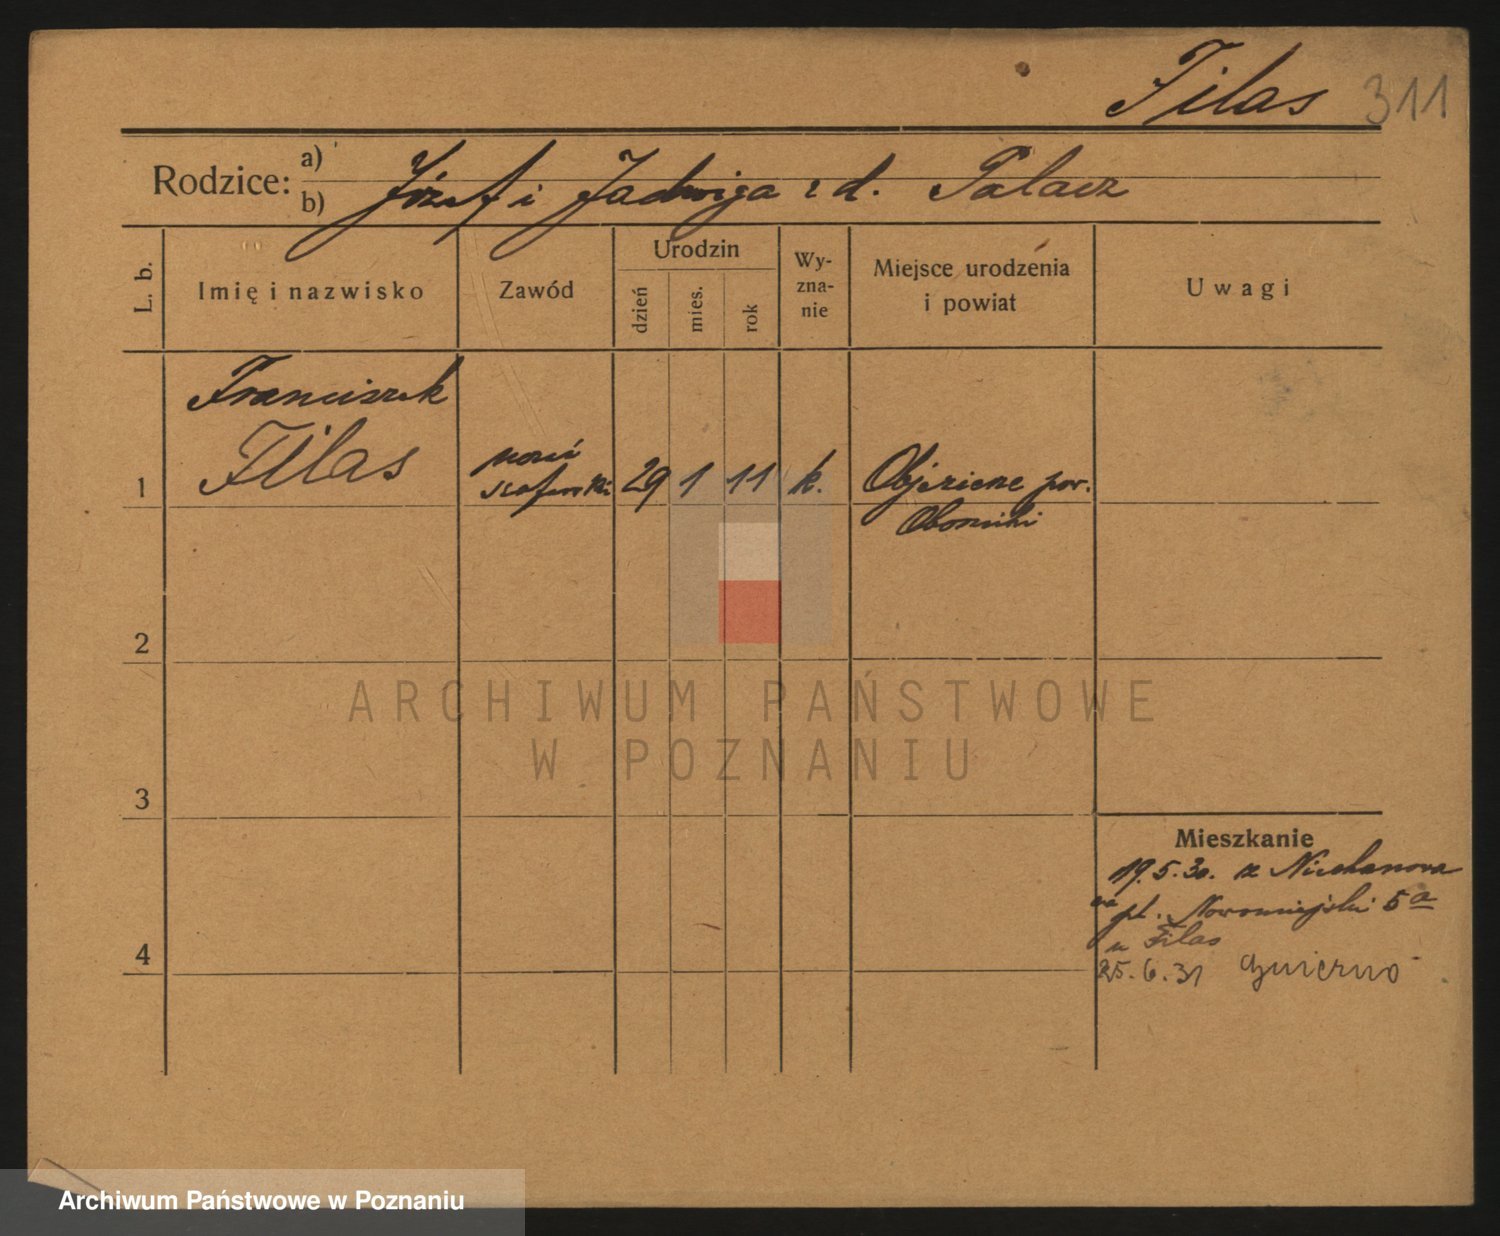 Filas 311
Rodzice: a)
b) Józef i Jadwiga z d. Palacz
L. b.
Imię i nazwisko
Zawód
Urodzin
dzień
mies.
rok
Wy-
zna-
nie
Miejsce urodzenia
i powiat
Uwagi
Franciszek
Filas
1
29 1 11 k. Objezierze pow.
Oborniki
2
3
4
Mieszkanie
19.5.30. z Niechanowa
na pl. Nowomiejski 5a
u Filas
25.6.31 Gniezno
ARCHIWUM PAŃSTWOWE
W POZNANIU
Archiwum Państwowe w Poznaniu